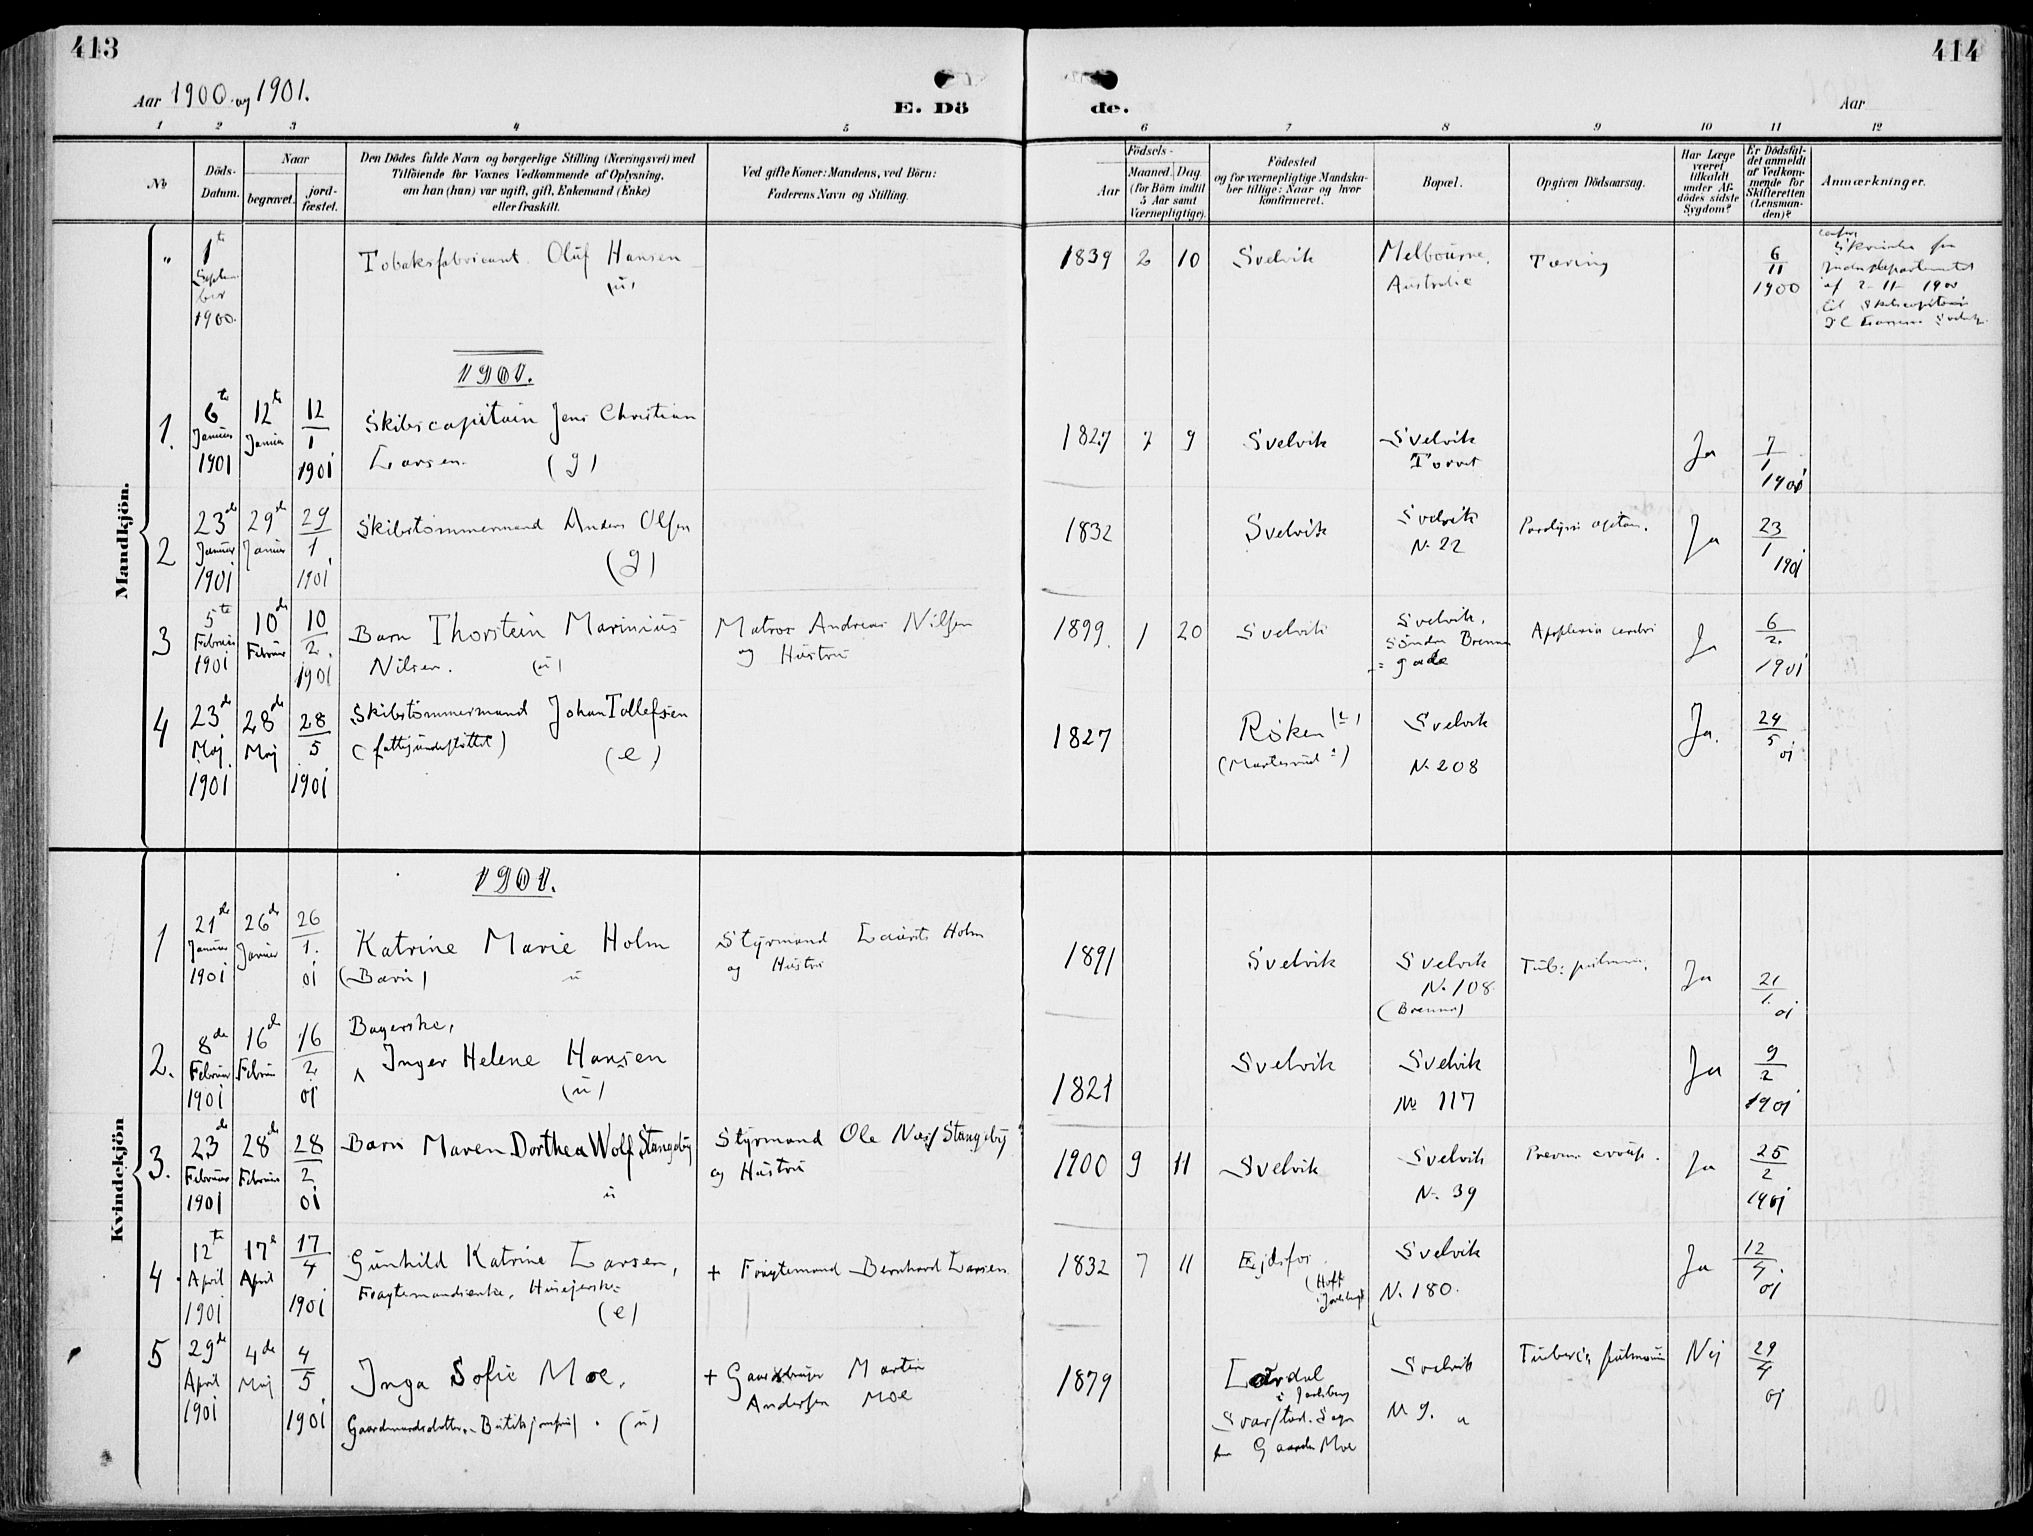 413
414
Aar 1900 og 1901.
E. Döde.
Aar
1 2 3 4 5 6 7 8 9 10 11 12
No
Döds-Datum.
Naar
begravet.
jordfæstet.
Den Dödes fulde Navn og borgerlige Stilling (Næringsvei) med
Tilföiende for Voxnes Vedkommende af Oplysning,
om han (hun) var ugift, gift, Enkemand (Enke)
eller fraskilt.
Ved gifte Koner: Mandens, ved Börn:
Faderens Navn og Stilling.
Födsels-
Aar
Maaned. Dag.
(for Börn indtil
5 Aar samt
Værnepligtige).
Födested
og for værnepligtige Mandska-
ber tillige: Naar og hvor
konfirmeret.
Bopæl.
Opgiven Dödsaarsag.
Har Læge
været
tilkaldt
under Af-
dödes sidste
Sygdom?
Er Dödsfal-
det anmeldt
af Vedkom-
mende for
Skifteretten
(Lensman-
den)?
Anmærkninger.
Mandkjön.
" 1te September 1900. Tobaksfabricant Oluf Hansen (u) 1839 2 10 Svelvik Melbourne, Australie Tæring 6/11 1900
af 2-11-1900
1901.
1. 6te Januar 1901 12te Januar 12/1 1901 Skibscapitain Jens Christian
Larsen. (g) 1827 7 9 Svelvik Svelvik Torvet Ja 7/1 1901
2 23de Januar 1901 29de Januar 29/1 1901 Skibstömmermand Anders Olsen
(g) 1832 Svelvik Svelvik N. 22 Ja 23/1 1901
3 5te Februar 1901 10de Februar 10/2. 1901 Barn Thorstein Marinius
Nilsen. (u) Matros Andreas Nilsen
og Hustru 1899. 1 20 Svelvik Svelvik, Söndre Brenna
gade Apoplexia cerebri Ja 6/2. 1901
4 23de Maj 1901 28de Maj 28/5 1901 Skibstömmermand Johan Tollefsen
(fattigunderstöttet) (e) 1827 Röken Svelvik N. 208 Ja. 24/5 01
Kvindekjön
1901.
1 21de Januar 1901 26de Januar 26/1. 01 Katrine Marie Holm
(Barn) u Styrmand Laurits Holm
og Hustru 1891 Svelvik Svelvik N. 108 (Brenna) Ja 21/1. 01
2. 8de Februar 1901 16de Februar 16/2 01 Bagerske,
Inger Helene Hansen
(u) 1821 Svelvik Svelvik No 117 Ja 9/2 1901
3. 23de Februar 1901 28de Februar 28/2 01 Barn Maren Dorthea Wolf Stangeby
u Styrmand Ole Næs Stangeby
og Hustru 1900 9 11 Svelvik Svelvik N. 39 Ja 25/2 1901
4. 12te April 1901 17e April 17/4 1901 Gunhild Katrine Larsen,
Fragtemandsenke, (e) + Fragtemand Bernhard Larsen 1832 7 11 Ejdsfos (Hoff Svelvik N. 180. Ja 12/4. 01
5 29de April 1901 4de Maj 4/5 1901 Inga Sofie Moe,
(u) + Gaardbruger Martin
Andersen Moe 1879 Lardal
i Jarlsberg
Svarstad Sogn
Gaarden Moe Svelvik N 9. Nej 29/4 01